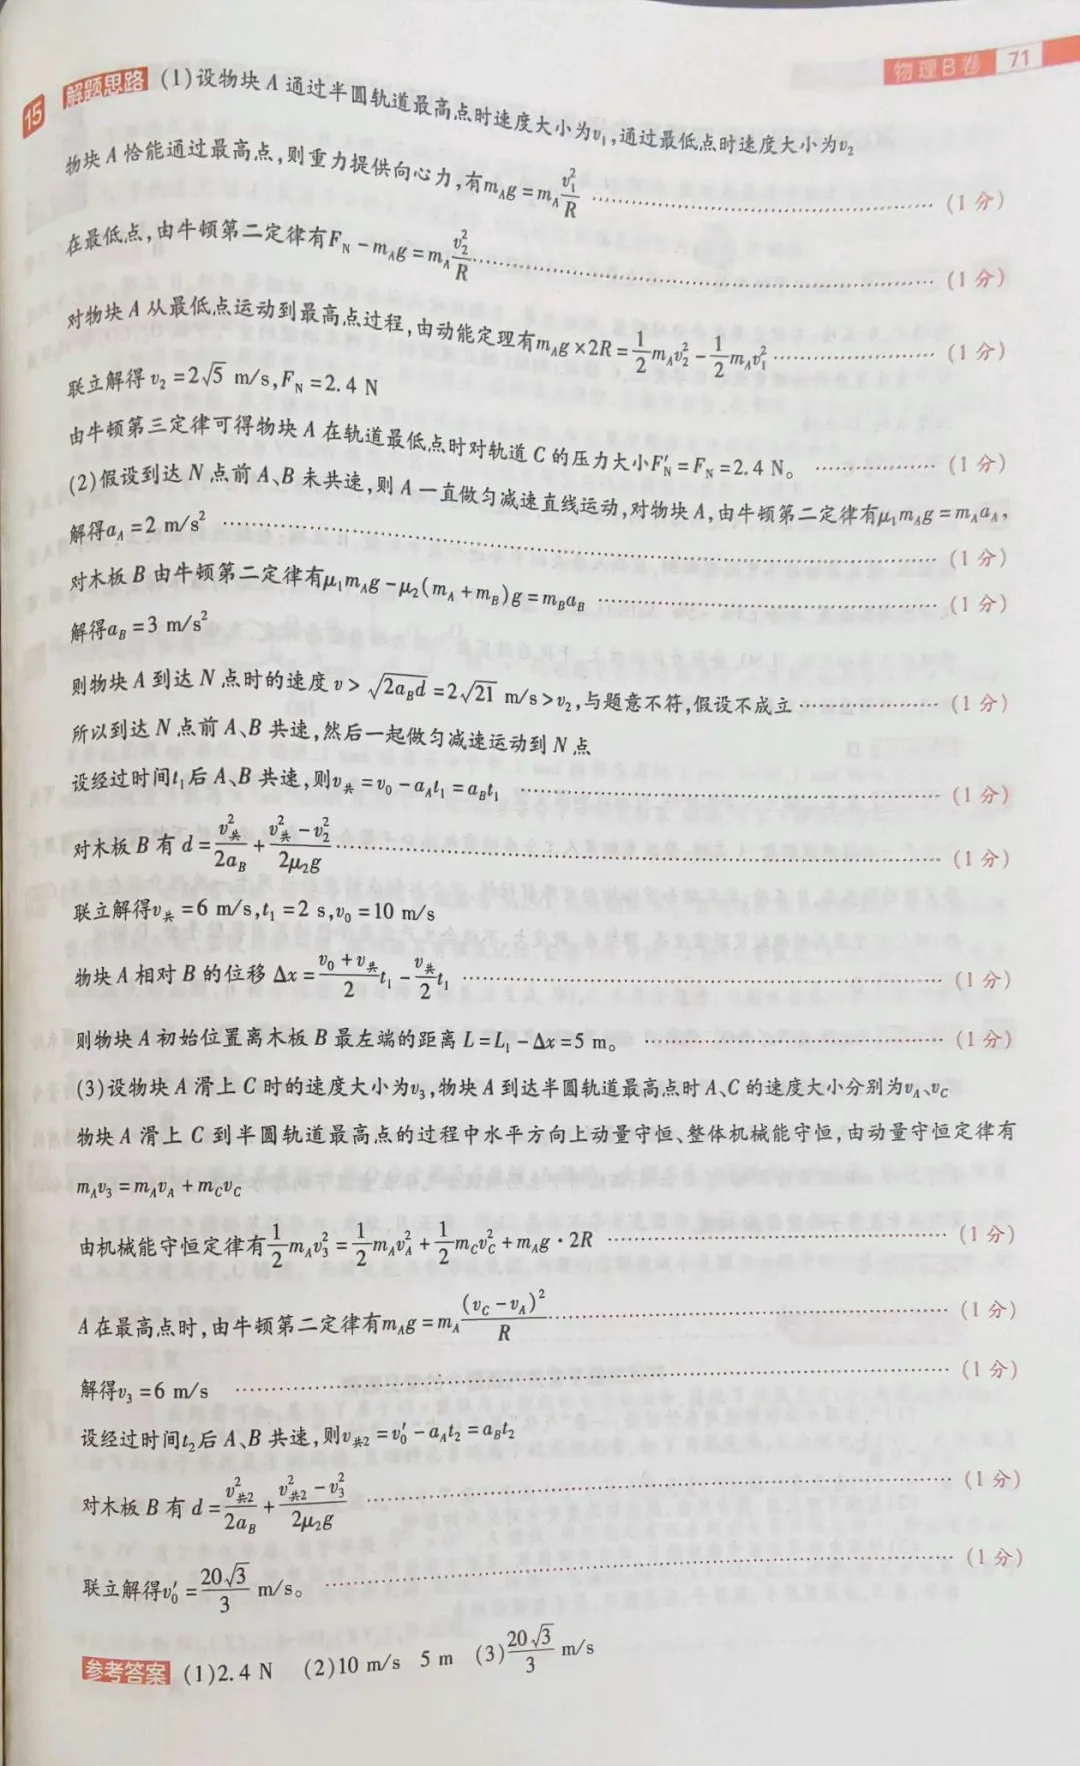 物理B卷 71
15 解题思路 (1)设物块 A 通过半圆轨道最高点时速度大小为v₁,通过最低点时速度大小为v₂
物块 A 恰能通过最高点,则重力提供向心力,有m_A g = m_A v₁²/R ……(1分)
在最低点,由牛顿第二定律有F_N - m_A g = m_A v₂²/R ……(1分)
对物块 A 从最低点运动到最高点过程,由动能定理有m_A g×2R = 1/2 m_A v₂² - 1/2 m_A v₁² ……(1分)
联立解得 v₂ = 2√5 m/s, F_N = 2.4 N
由牛顿第三定律可得物块 A 在轨道最低点时对轨道 C 的压力大小F′_N = F_N = 2.4 N。 ……(1分)
(2)假设到达 N 点前 A、B 未共速,则 A 一直做匀减速直线运动,对物块 A,由牛顿第二定律有μ₁m_A g = m_A a_A,
解得a_A = 2 m/s² ……(1分)
对木板 B 由牛顿第二定律有μ₁m_A g - μ₂(m_A + m_B)g = m_B a_B ……(1分)
解得a_B = 3 m/s²
则物块 A 到达 N 点时的速度 v > √(2a_B d) = 2√21 m/s > v₂,与题意不符,假设不成立 ……(1分)
所以到达 N 点前 A、B 共速,然后一起做匀减速运动到 N 点
设经过时间t₁后 A、B 共速,则v_共 = v₀ - a_A t₁ = a_B t₁ ……(1分)
对木板 B 有 d = v_共²/2a_B + (v_共² - v₂²)/2μ₂g ……(1分)
联立解得v_共 = 6 m/s, t₁ = 2 s, v₀ = 10 m/s
物块 A 相对 B 的位移 Δx = (v₀ + v_共)/2 t₁ - v_共/2 t₁ ……(1分)
则物块 A 初始位置离木板 B 最左端的距离 L = L₁ - Δx = 5 m。 ……(1分)
(3)设物块 A 滑上 C 时的速度大小为v₃,物块 A 到达半圆轨道最高点时 A、C 的速度大小分别为v_A、v_C
物块 A 滑上 C 到半圆轨道最高点的过程中水平方向上动量守恒、整体机械能守恒,由动量守恒定律有
m_A v₃ = m_A v_A + m_C v_C
由机械能守恒定律有 1/2 m_A v₃² = 1/2 m_A v_A² + 1/2 m_C v_C² + m_A g·2R ……(1分)
A 在最高点时,由牛顿第二定律有m_A g = m_A (v_C - v_A)²/R ……(1分)
解得v₃ = 6 m/s ……(1分)
设经过时间t₂后 A、B 共速,则v_共2 = v₀′ - a_A t₂ = a_B t₂
对木板 B 有 d = v_共2²/2a_B + (v_共2² - v₃²)/2μ₂g ……(1分)
联立解得v₀′ = 20√3/3 m/s。 ……(1分)
参考答案 (1)2.4 N (2)10 m/s 5 m (3)20√3/3 m/s